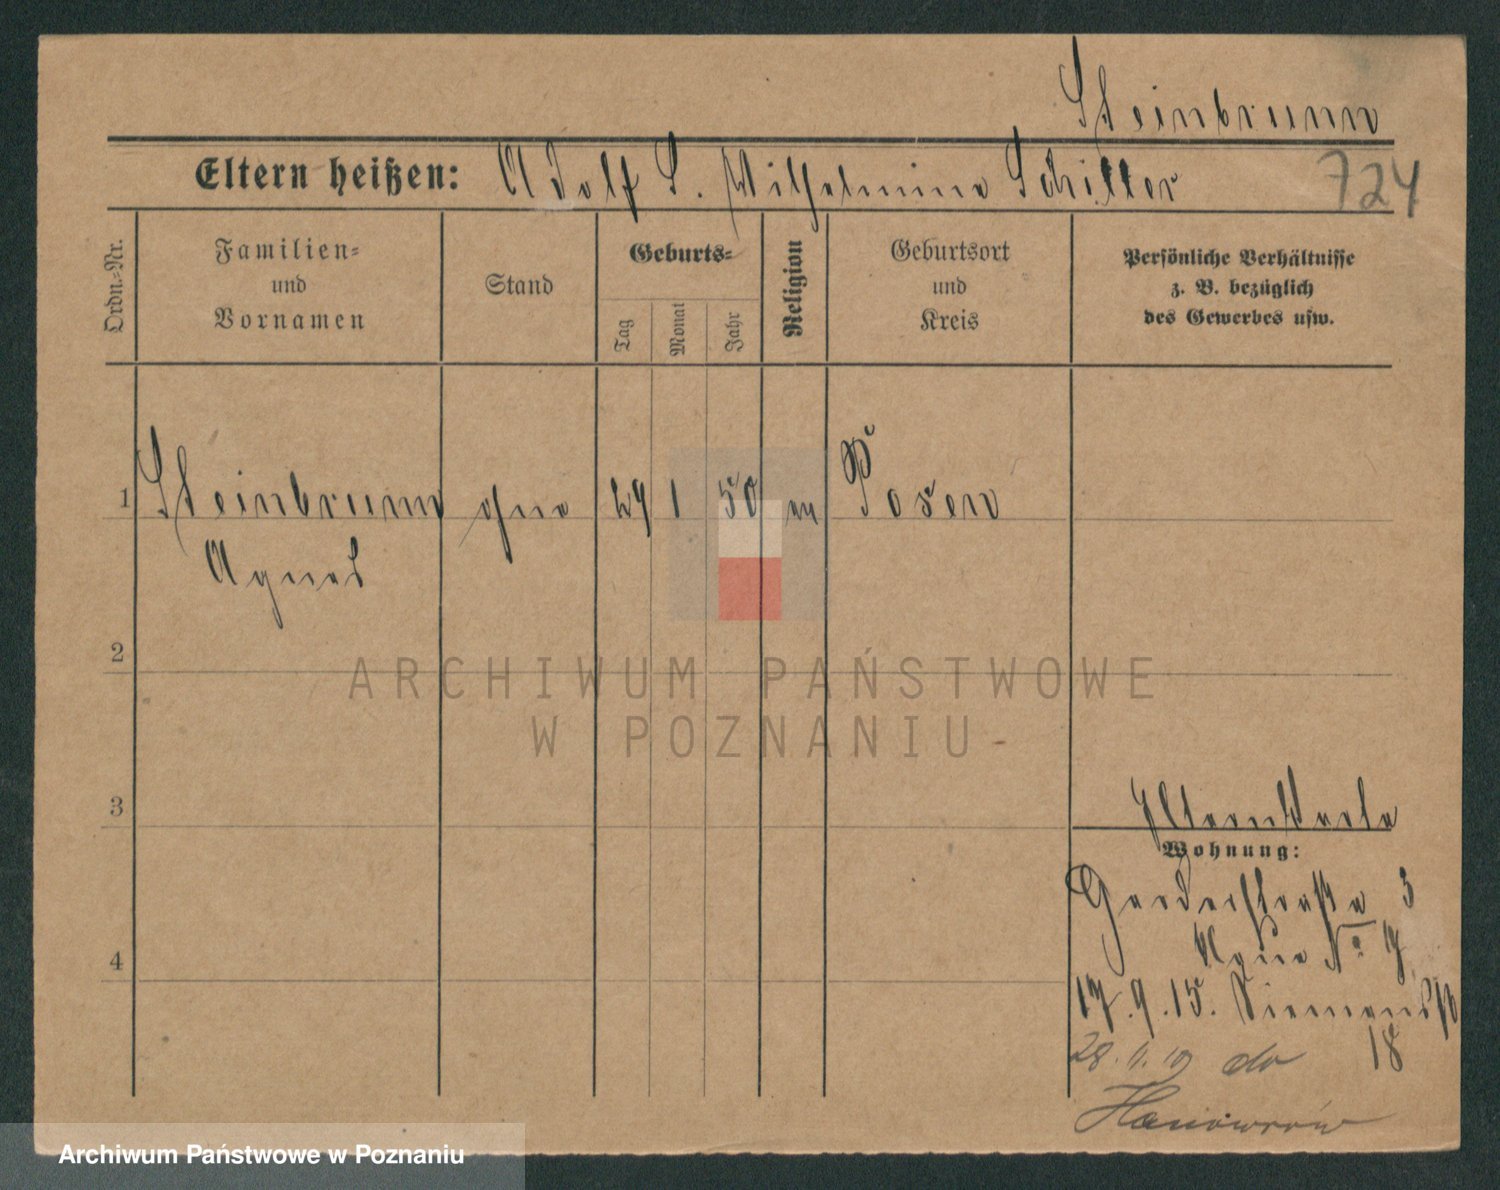 Steinbrunn
Eltern heißen: Adolf S. Wilhelmine Schiller
724
Ordn.-Nr.
Familien-
und
Vornamen
Stand
Geburts-
Tag
Monat
Jahr
Religion
Geburtsort
und
Kreis
Persönliche Verhältnisse
z. B. bezüglich
des Gewerbes usw.
1 Steinbrunn ohne 29 1 50 ev Posen
Agnes
2
ARCHIWUM PAŃSTWOWE
W POZNANIU
3
Wohnung:
3
4
No
17.9.15. Siemensstr
18
do
Archiwum Państwowe w Poznaniu